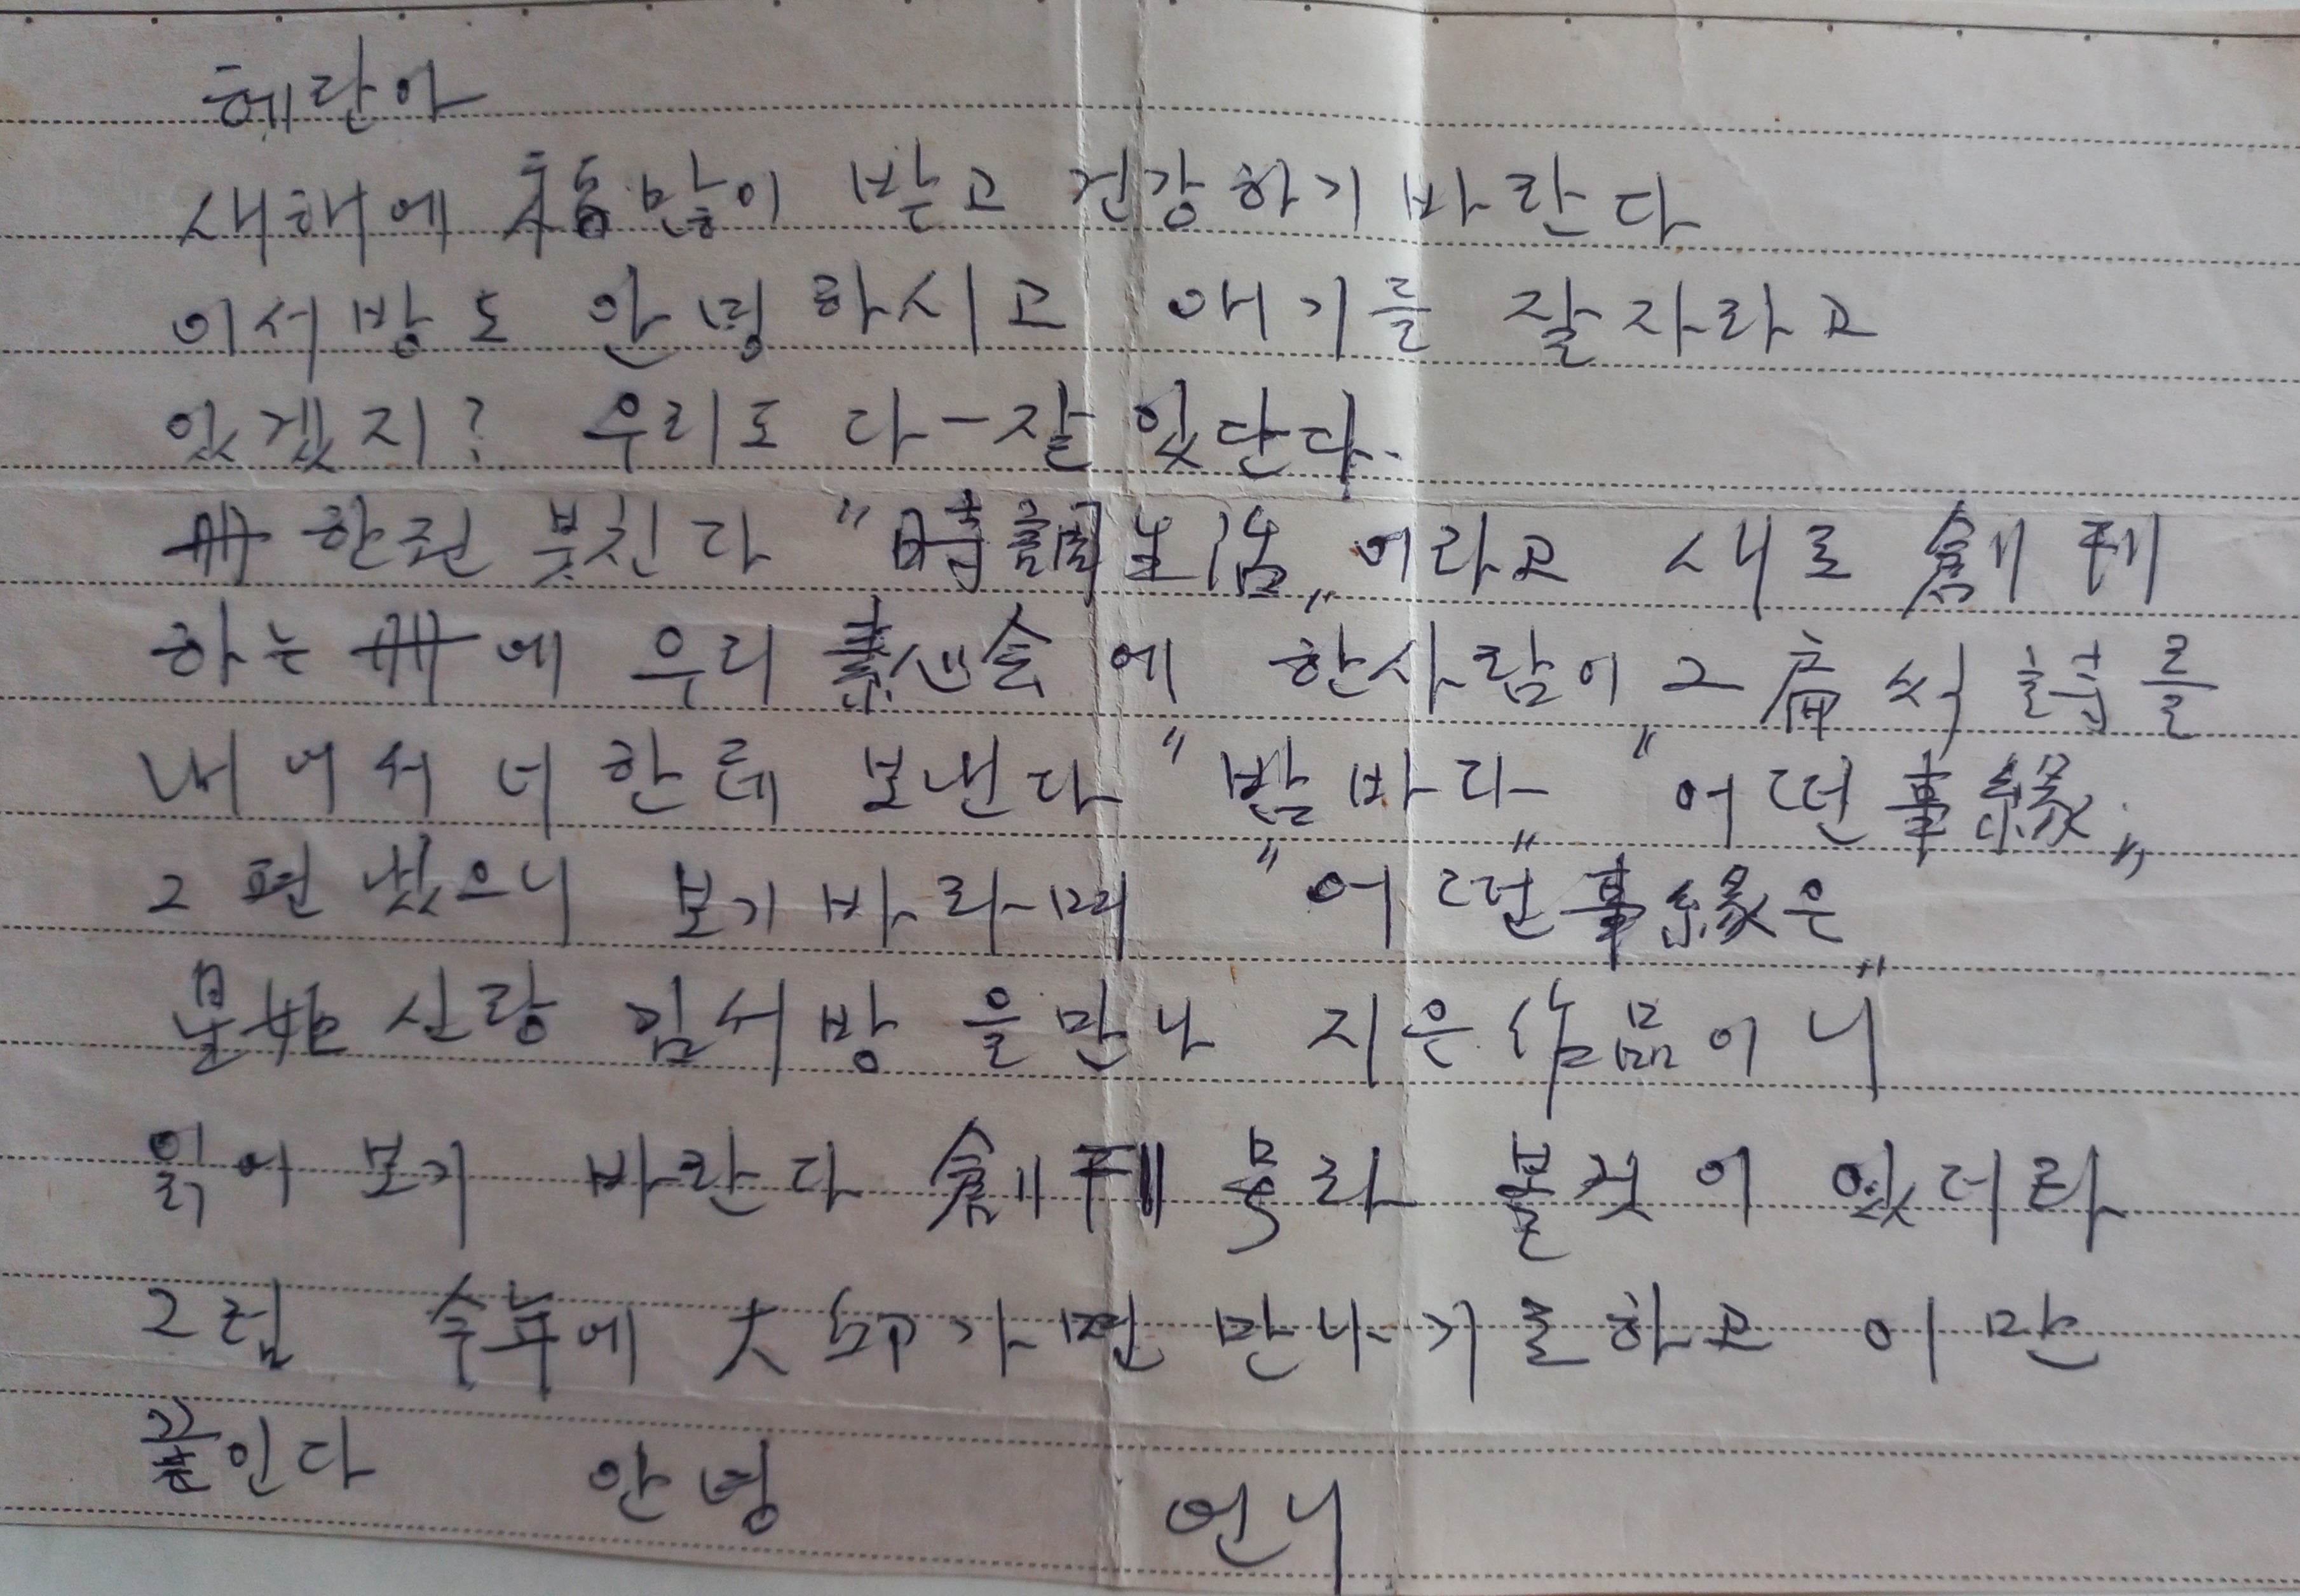 혜란아
새해에 福많이 받고 건강하기 바란다
이서방도 안녕하시고 애기를 잘자라고
있겠지? 우리도 다-잘 있단다.
冊 한권 붓친다 "時調生活„이라고 새로 創刊
하는 冊에 우리 素心会에 한사람이 2篇씩 詩를
내어서 너한테 보낸다 "밤바다„ "어떤事緣„
2편 냈으니 보기 바라며 "어떤事緣은„
신랑 임서방을만나 지은 作品이니
읽어 보기 바란다 創刊 물라 볼것이 있더라
그럼 今年에 大邱가면 만나기로하고 이만
끝인다 안녕 언니